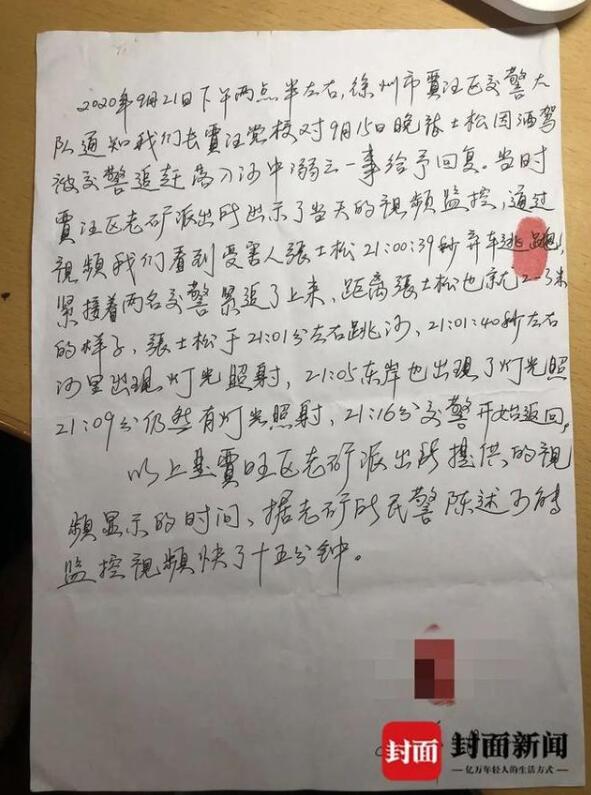 2020年9月21日下午两点半左右,徐州市贾汪区交警大
队通知我们去贾汪党校对9月15日晚张士松因酒驾
被交警追赶落入河中溺亡一事给予回复。当时
贾汪区老矿派出所出示了当天的视频监控,通过
视频我们看到受害人张士松21:00:39秒弃车逃跑,
紧接着两名交警紧追了上来,距离张士松也就2-3米
的样子,张士松于21:01分左右跳河,21:01:40秒左右
河里出现灯光照射,21:05东岸也出现了灯光照
21:09分仍然有灯光照射,21:16分交警开始返回,
以上是贾旺区老矿派出所提供的视
频显示的时间、据老矿所民警陈述
监控视频快了十五分钟。
封面 封面新闻
亿万年轻人的生活方式